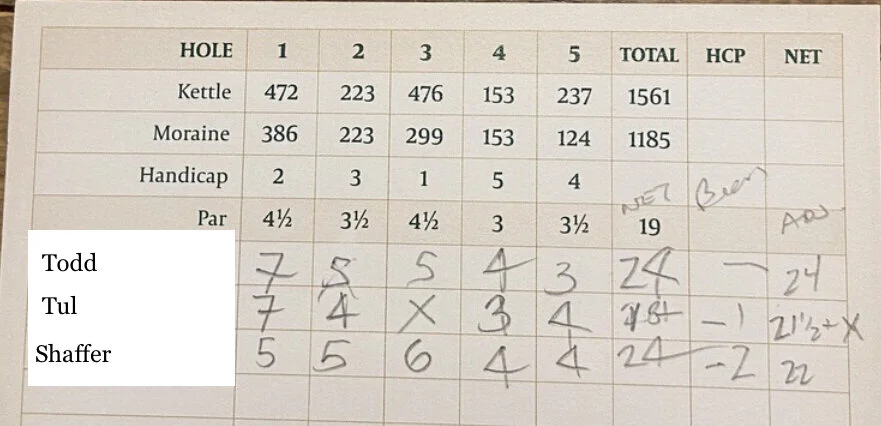 HOLE 1 2 3 4 5 TOTAL HCP NET
Kettle 472 223 476 153 237 1561
Moraine 386 223 299 153 124 1185
Handicap 2 3 1 5 4 NET Beers
Par 4½ 3½ 4½ 3 3½ 19 ADJ.
Todd 7 5 5 4 3 24 — 24
Tul 7 4 X 3 4 18+ -1 21½+X
Shaffer 5 5 6 4 4 24 -2 22